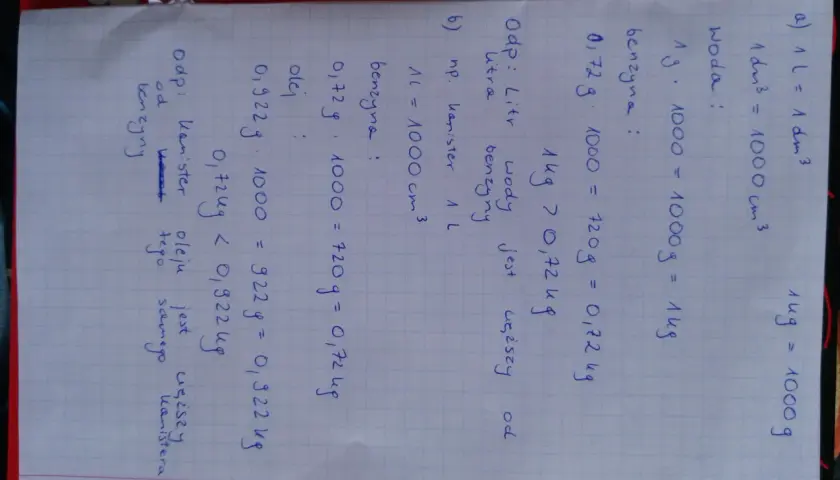 a) 1 L = 1 dm³ 1kg = 1000g
1dm³ = 1000 cm³
Woda :
1g · 1000 = 1000g = 1kg
benzyna :
0,72g · 1000 = 720g = 0,72kg
1kg > 0,72kg
Odp: Litr wody jest cięższy od
litra benzyny
b) np. kanister 1 L
1L = 1000cm³
benzyna :
0,72g · 1000 = 720g = 0,72kg
olej :
0,922g · 1000 = 922g = 0,922kg
0,72kg < 0,922kg
Odp: kanister oleju jest cięższy
od tego samego kanistera
benzyny